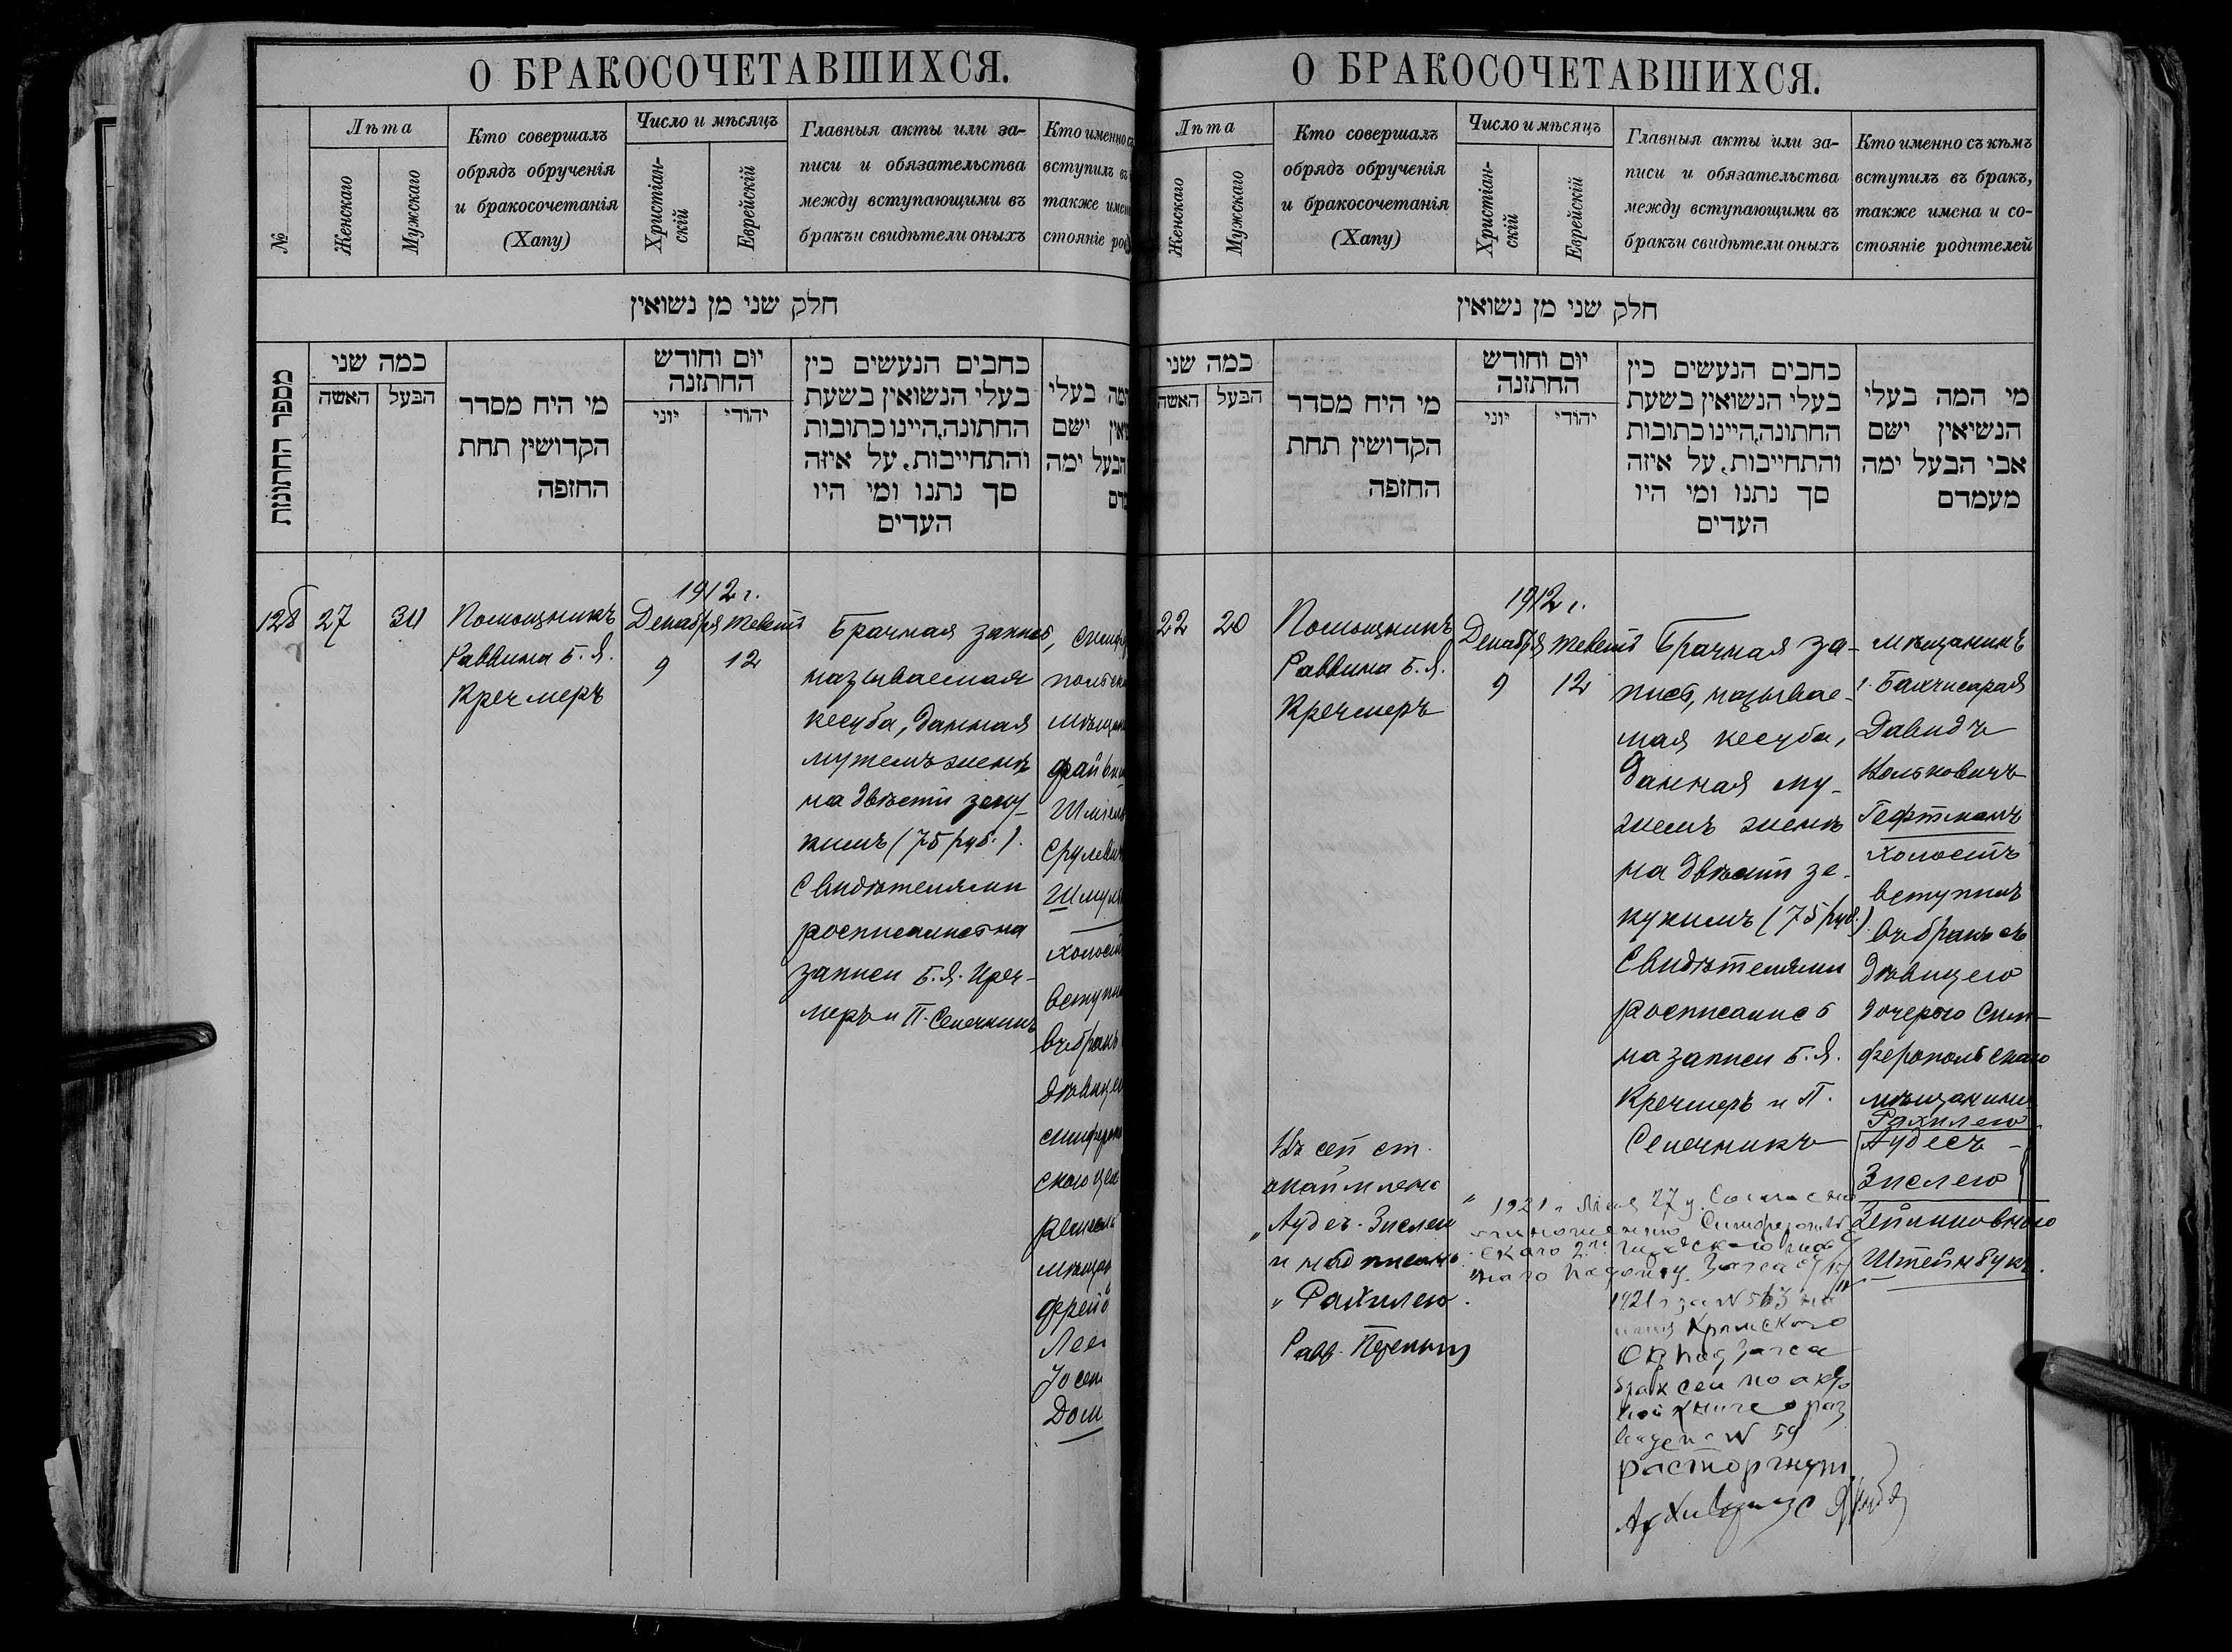 О БРАКОСОЧЕТАВШИХСЯ.
№
Лѣта
Женскаго
Мужскаго
Кто совершалъ
обрядъ обрученія
и бракосочетанія
(Хапу)
Число и мѣсяцъ
Христіан-
скій
Еврейскій
Главныя акты или за-
писи и обязательства
между вступающими въ
бракъ и свидѣтели оныхъ
Кто именно съ
вступилъ въ
также имен
стояніе род
חלק שני מן נשואין
מספר החתונות
כמה שני
האשה
הבעל
מי היח מסדר
הקדושין תחת
החופה
יום וחודש
החתונה
יוני
יהודי
כתבים הנעשים בין
בעלי הנשואין בשעת
החתונה, היינו כתובות
והתחייבות, על איזה
סך נתנו ומי היו
העדים
בעלי
ישם
הבעל ימה
128
27
34
Помощникъ
Раввина Б. Я.
Кречмеръ
1912 г.
Декабря
9
Тевет
12
Брачная запись,
называемая
кесуба, данная
мужемъ женѣ
на двѣсти зеку-
кимъ (75 руб.).
Свидѣтелями
росписались на
записи Б. Я. Креч-
меръ и П. Сепечникъ
симфе
польск
мѣщан
Файв
Шміел
Срулеви
Шмул
холост
вступил
въ бракъ
дѣвице
симферо
скаго
мѣщан
Лее
Іосе
Дом
О БРАКОСОЧЕТАВШИХСЯ.
Лѣта
Женскаго
Мужскаго
Кто совершалъ
обрядъ обрученія
и бракосочетанія
(Хапу)
Число и мѣсяцъ
Христіан-
скій
Еврейскій
Главныя акты или за-
писи и обязательства
между вступающими въ
бракъ и свидѣтели оныхъ
Кто именно съ кѣмъ
вступилъ въ бракъ,
также имена и со-
стояніе родителей
חלק שני מן נשואין
כמה שני
האשה
הבעל
מי היח מסדר
הקדושין תחת
החופה
יום וחודש
החתונה
יוני
יהודי
כתבים הנעשים בין
בעלי הנשואין בשעת
החתונה, היינו כתובות
והתחייבות, על איזה
סך נתנו ומי היו
העדים
מי המה בעלי
הנשיאין ישם
אבי הבעל ימה
מעמדם
22
20
Помощникъ
Раввина Б. Я.
Кречмеръ
1912 г.
Декабря
9
Тевет
12
Брачная за-
пись, называе-
мая кесуба,
данная му-
жемъ женѣ
на двѣсти зе-
кукимъ (75 руб.).
Свидѣтелями
росписались
на записи Б. Я.
Кречмеръ и П.
Сепечникъ
мѣщанинъ
г. Бахчисарая
Давидъ
Вольковичъ
Гефтманъ
холостъ
вступилъ
въ бракъ съ
дѣвицею
дочерью Сим-
феропольскаго
мѣщанина
Рахилею
Аудесъ-
Зислею
Штейнбукъ.
Въ сей ст.
окаймлено
"Аудесъ-Зислею
и надписано
"Рахилею.
Рав.
1921 г. Мая 27 д. Согласно
отношению Симферополь
ского 2го городского
1921 г за № 563
Крымского
брак сей по акто
вой книге о раз
№ 59
расторгнут
Архивариус